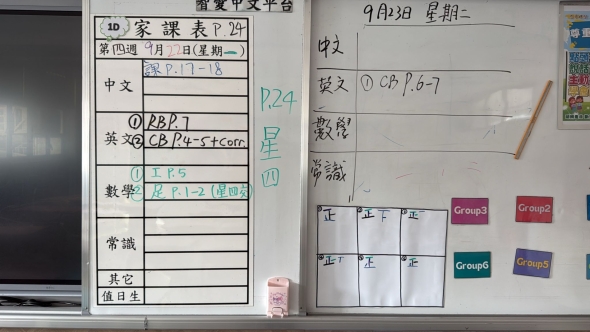 智愛中文平台
1D 家課表 P.24
第四週 9月22日(星期一)
中文
課 P.17-18
英文
① RB P.7
② CB P.4-5+corr.
數學
① 工 P.5
② 足 P.1-2 (星四交)
常識
其它
值日生
P.24
星
四
9月23日 星期二
中文
英文 ① CB P.6-7
數學
常識
Group3
Group2
Group6
Group5